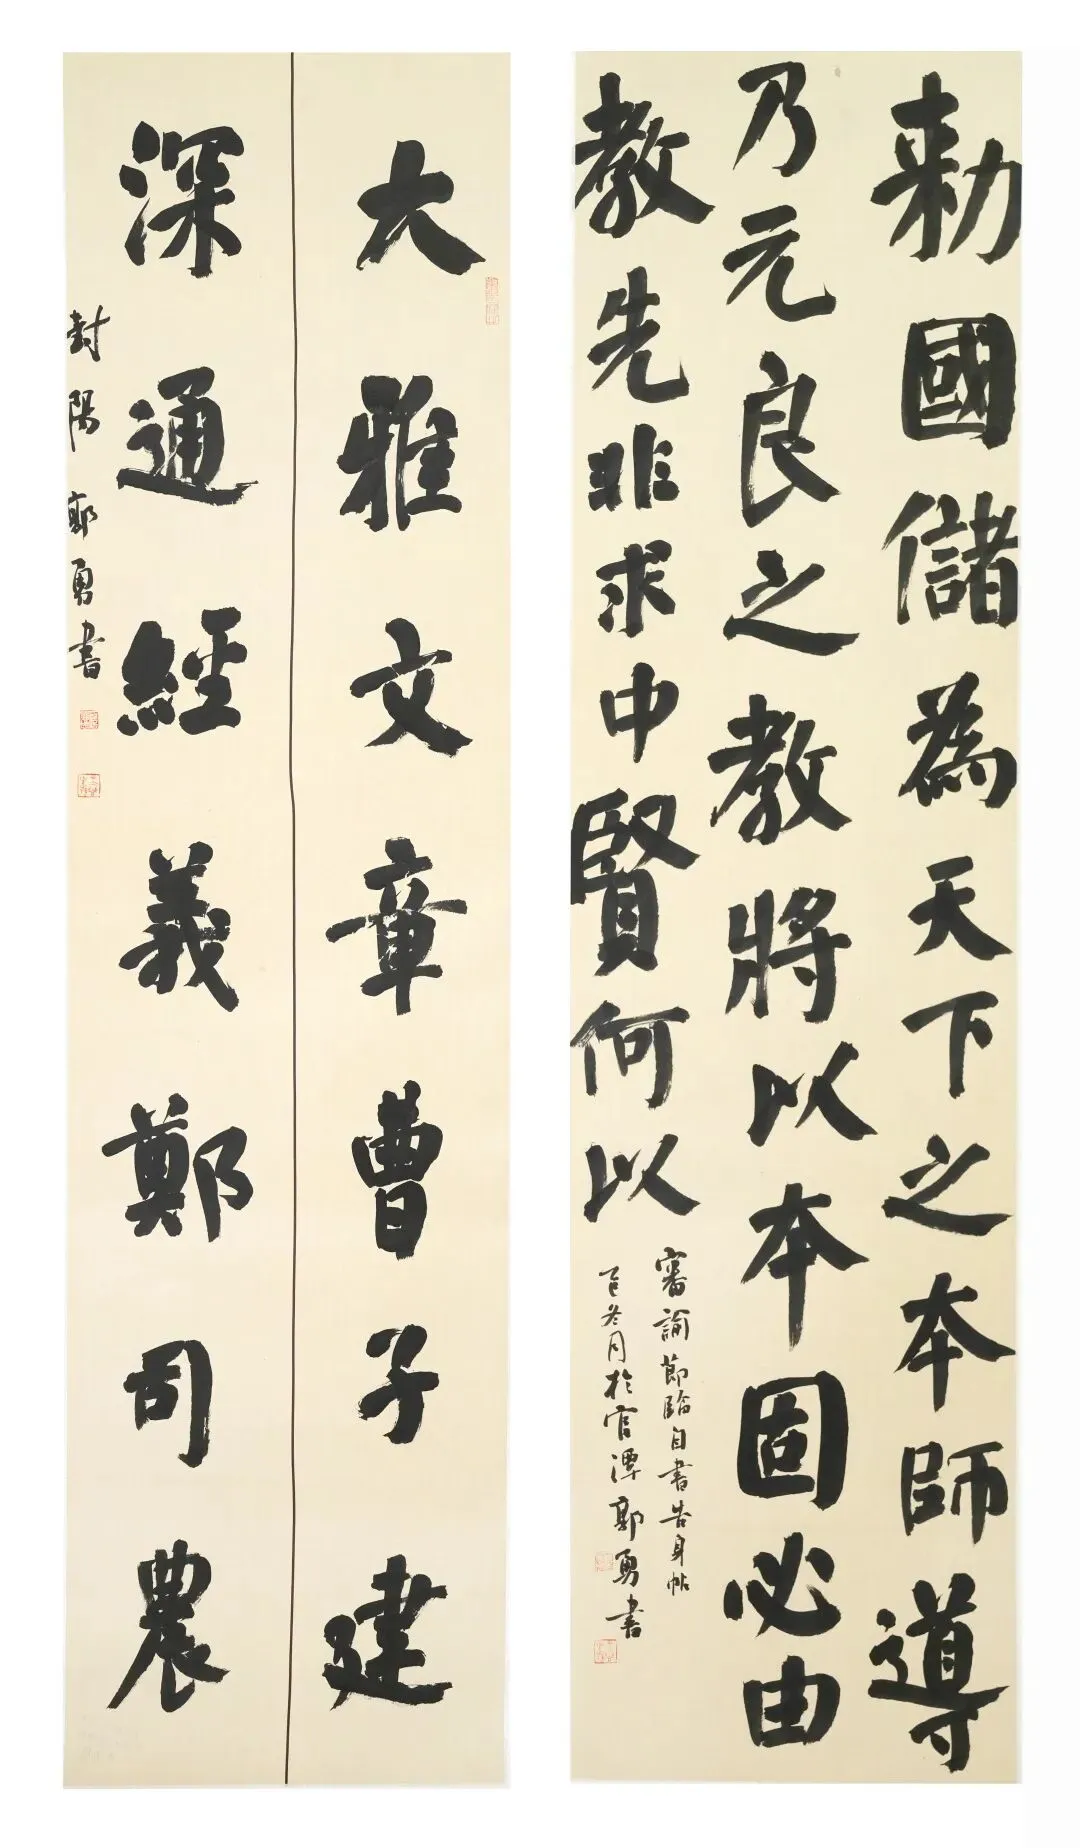 勅國儲為天下之本師導
乃元良之教將以本固必由
教先非求中賢何以
審諭節臨自書告身帖
乙巳冬月於官潭郭勇書
大雅文章曹子建
深通經義鄭司農
封陽郭勇書